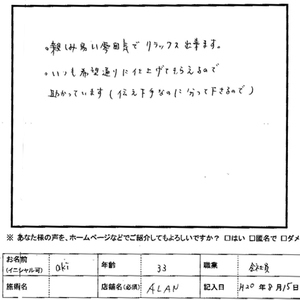 ・親しみ易い雰囲気でリラックス出来ます。
・いつも希望通りに仕上げてもらえるので
助かっています(伝え下手なのに分って下さるので)
※ あなた様の声を、ホームページなどでご紹介してもよろしいですか? □はい □匿名で □ダメ
お名前(イニシャル可) aki 年齢 33 職業 会社員
施術名 店舗名(必須) ALAN 記入日 H20年9月15日